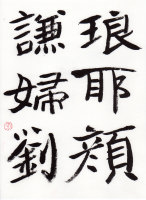 琅耶顔
謙婦劉